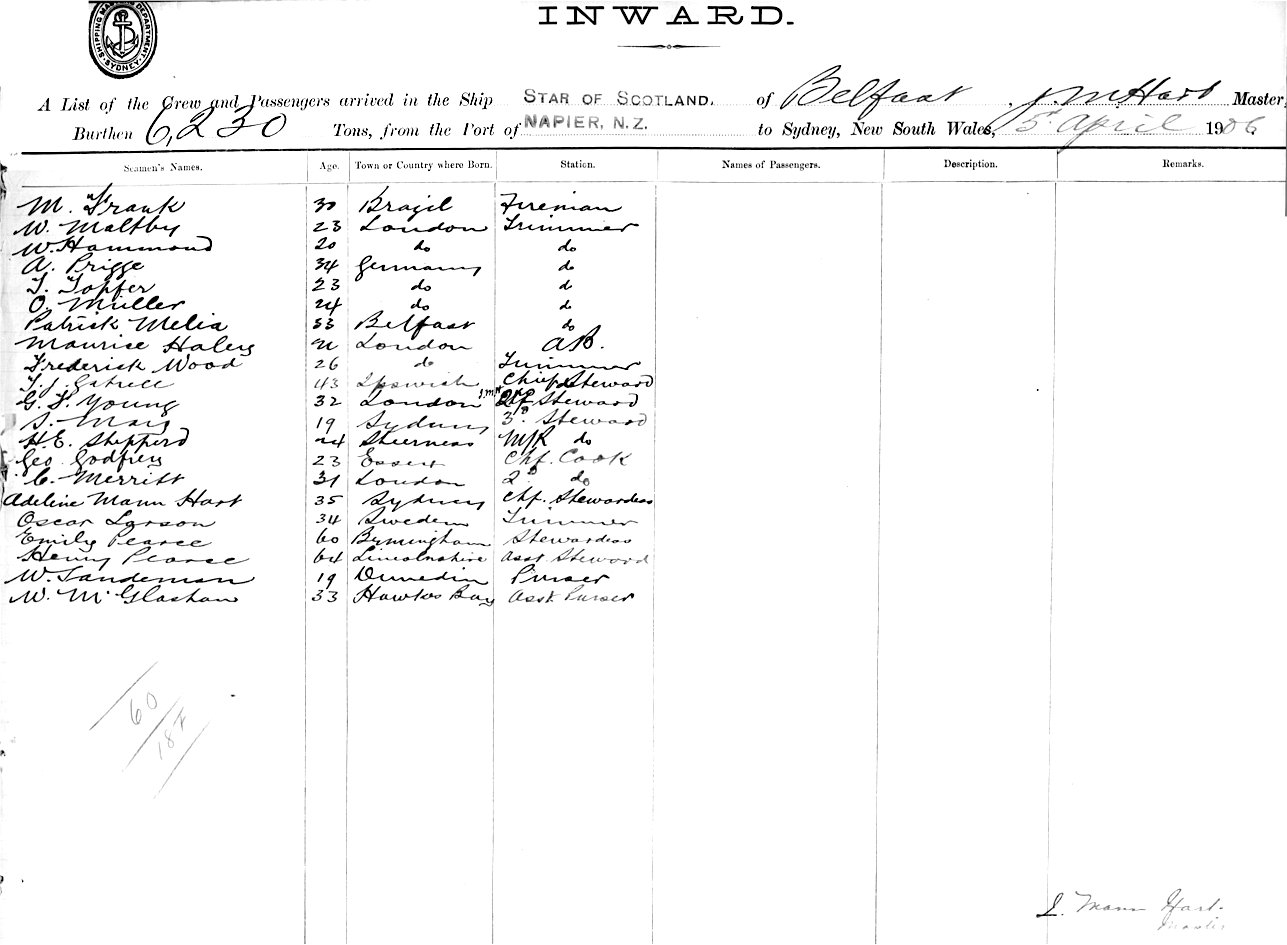 SHIPPING MASTER'S DEPARTMENT SYDNEY
INWARD.
A List of the Crew and Passengers arrived in the Ship STAR OF SCOTLAND. of Belfast, J. M. Hart Master,
Burthen 6,230 Tons, from the Port of NAPIER, N.Z. to Sydney, New South Wales, 5 April 1906
Seamen's Names. Age. Town or Country where Born. Station. Names of Passengers. Description. Remarks.
M. Frank 30 Brazil Fireman
W. Maltby 23 London Trimmer
W. Hammond 20 do do
A. Prigge 34 Germany do
T. Topfer 23 do do
O. Müller 24 do do
Patrick Melia 33 Belfast do
Maurice Haley 21 London A.B.
Frederick Wood 26 do Trimmer
T. J. Gatrell 43 Ipswich Chief Steward
G. F. Young 32 London J.M.H. 2nd Steward
S. Mais 19 Sydney 3rd Steward
H.E. Shepperd 24 Sheerness M/R do
Geo Godfrey 23 Essex Chf. Cook
C. Merritt 31 London 2nd do
Adeline Mann Hart 35 Sydney Chf. Stewardess
Oscar Larson 34 Sweden Trimmer
Emily Pearce 60 Byrmingham Stewardess
Henry Pearce 64 Lincolnshire Asst Steward
W. Sandeman 19 Dunedin Purser
W. McGlashan 33 Hawkes Bay Asst. Purser
60
187
J. Mann Hart.
Master